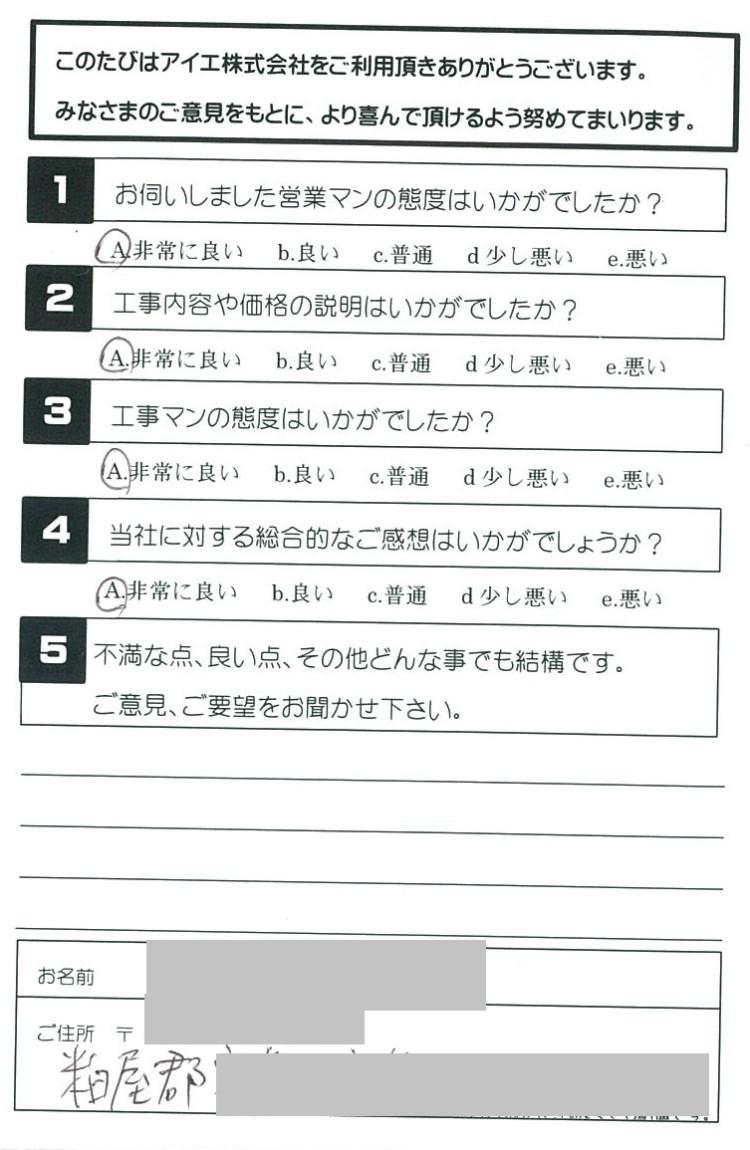 このたびはアイエ株式会社をご利用頂きありがとうございます。
みなさまのご意見をもとに、より喜んで頂けるよう努めてまいります。
1 お伺いしました営業マンの態度はいかがでしたか？
A.非常に良い b.良い c.普通 d 少し悪い e.悪い
2 工事内容や価格の説明はいかがでしたか？
A.非常に良い b.良い c.普通 d 少し悪い e.悪い
3 工事マンの態度はいかがでしたか？
A.非常に良い b.良い c.普通 d 少し悪い e.悪い
4 当社に対する総合的なご感想はいかがでしょうか？
A.非常に良い b.良い c.普通 d 少し悪い e.悪い
5 不満な点、良い点、その他どんな事でも結構です。
ご意見、ご要望をお聞かせ下さい。
お名前
ご住所 〒
粕屋郡